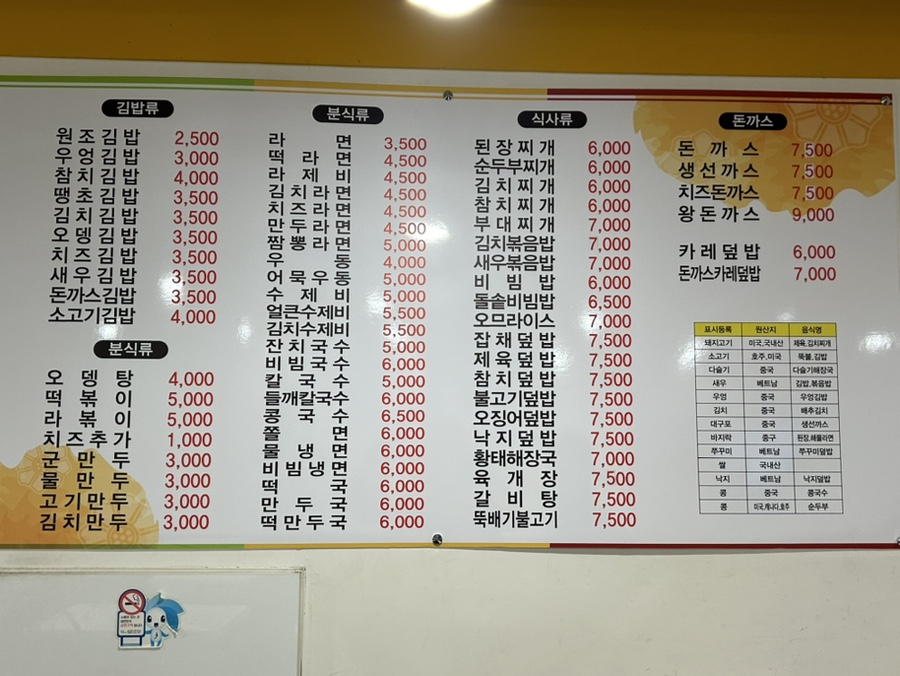 김밥류
원조김밥 2,500
우엉김밥 3,000
참치김밥 4,000
땡초김밥 3,500
김치김밥 3,500
오뎅김밥 3,500
치즈김밥 3,500
새우김밥 3,500
돈까스김밥 3,500
소고기김밥 4,000
분식류
오뎅탕 4,000
떡볶이 5,000
라볶이 5,000
치즈추가 1,000
군만두 3,000
물만두 3,000
고기만두 3,000
김치만두 3,000
분식류
라면 3,500
떡라면 4,500
라제비 4,500
김치라면 4,500
치즈라면 4,500
만두라면 4,500
짬뽕라면 5,000
우동 4,000
어묵우동 5,000
수제비 5,000
얼큰수제비 5,500
김치수제비 5,500
잔치국수 5,000
비빔국수 6,000
칼국수 5,000
들깨칼국수 6,000
콩국수 6,500
쫄면 6,000
물냉면 6,000
비빔냉면 6,000
떡국 6,000
만두국 6,000
떡만두국 6,000
식사류
된장찌개 6,000
순두부찌개 6,000
김치찌개 6,000
참치찌개 6,000
부대찌개 7,000
김치볶음밥 7,000
새우볶음밥 7,000
비빔밥 6,000
돌솥비빔밥 6,500
오므라이스 7,000
잡채덮밥 7,500
제육덮밥 7,500
참치덮밥 7,500
불고기덮밥 7,500
오징어덮밥 7,500
낙지덮밥 7,500
황태해장국 7,000
육개장 7,500
갈비탕 7,500
뚝배기불고기 7,500
돈까스
돈까스 7,500
생선까스 7,500
치즈돈까스 7,500
왕돈까스 9,000
카레덮밥 6,000
돈까스카레덮밥 7,000
표시등록 원산지 음식명
돼지고기 미국,국내산 제육,김치찌개
소고기 호주,미국 뚝불,김밥
다슬기 중국 다슬기해장국
새우 베트남 김밥,볶음밥
우엉 중국 우엉김밥
김치 중국 배추김치
대구포 중국 생선까스
바지락 중구 된장,해물라면
쭈꾸미 베트남 쭈꾸미덮밥
쌀 국내산
낙지 베트남 낙지덮밥
콩 중국 콩국수
콩 미국,캐나다,호주 순두부